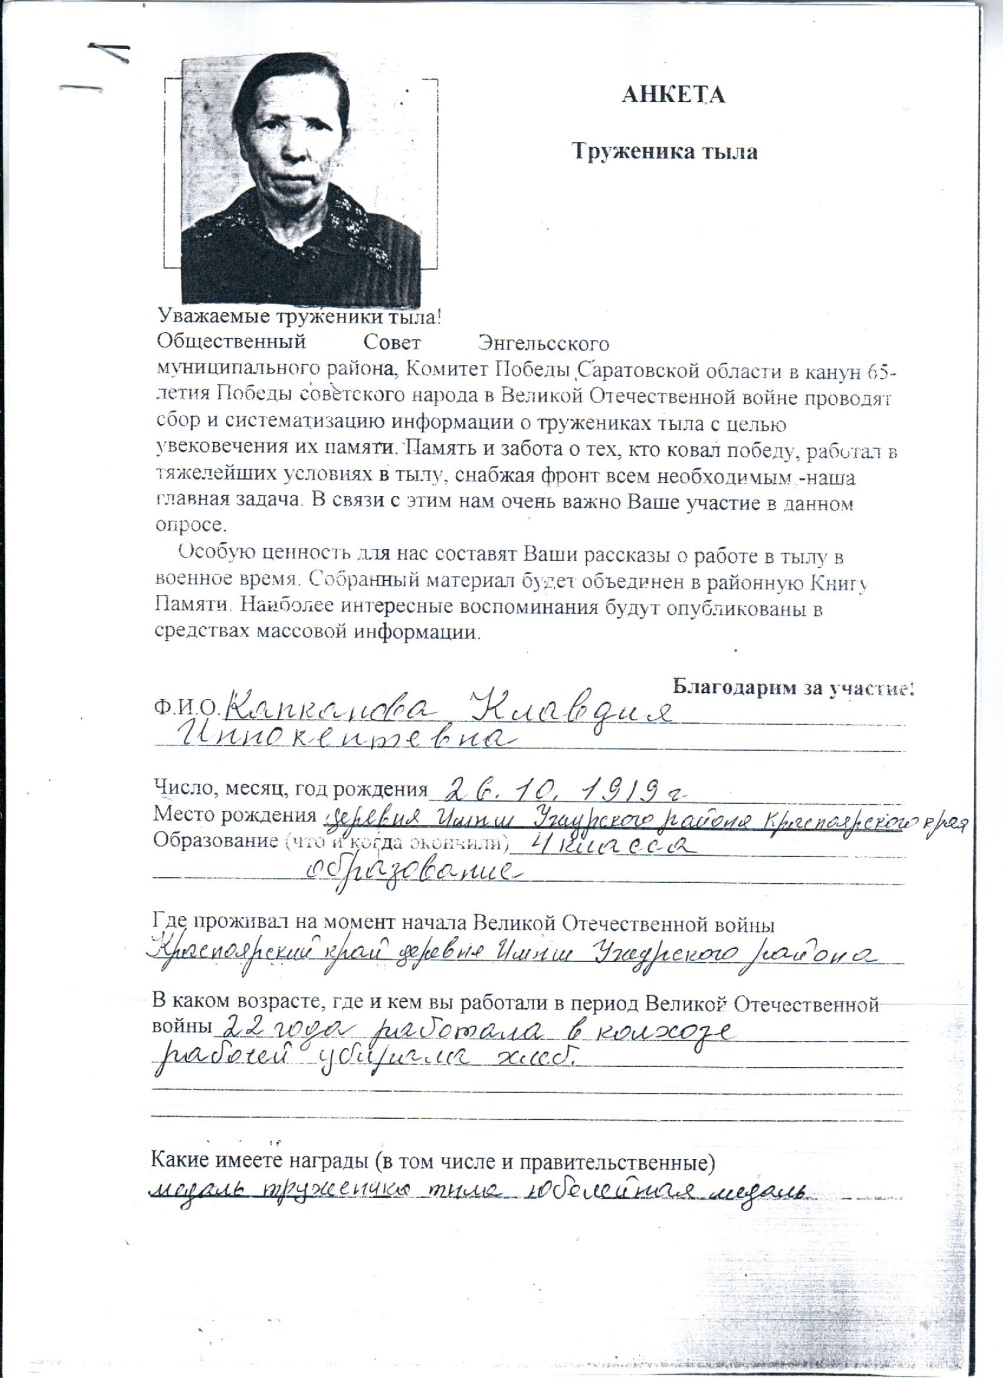 АНКЕТА
Труженика тыла
Уважаемые труженики тыла!
Общественный Совет Энгельсского
муниципального района, Комитет Победы Саратовской области в канун 65-
летия Победы советского народа в Великой Отечественной войне проводят
сбор и систематизацию информации о тружениках тыла с целью
увековечения их памяти. Память и забота о тех, кто ковал победу, работал в
тяжелейших условиях в тылу, снабжая фронт всем необходимым -наша
главная задача. В связи с этим нам очень важно Ваше участие в данном
опросе.
Особую ценность для нас составят Ваши рассказы о работе в тылу в
военное время. Собранный материал будет объединен в районную Книгу
Памяти. Наиболее интересные воспоминания будут опубликованы в
средствах массовой информации.
Благодарим за участие!
Ф.И.О. Капканова Клавдия
Иннокентевна
Число, месяц, год рождения 26.10.1919 г
Место рождения деревня Имиш Ужурского района Красноярского края
Образование (что и когда окончили) 4 класса
образование
Где проживал на момент начала Великой Отечественной войны
Красноярский край деревня Имиш Ужурского района
В каком возрасте, где и кем вы работали в период Великой Отечественной
войны 22 года работала в колхозе
рабочей убирала хлеб.
Какие имеете награды (в том числе и правительственные)
медаль труженика тыла юбелейная медаль